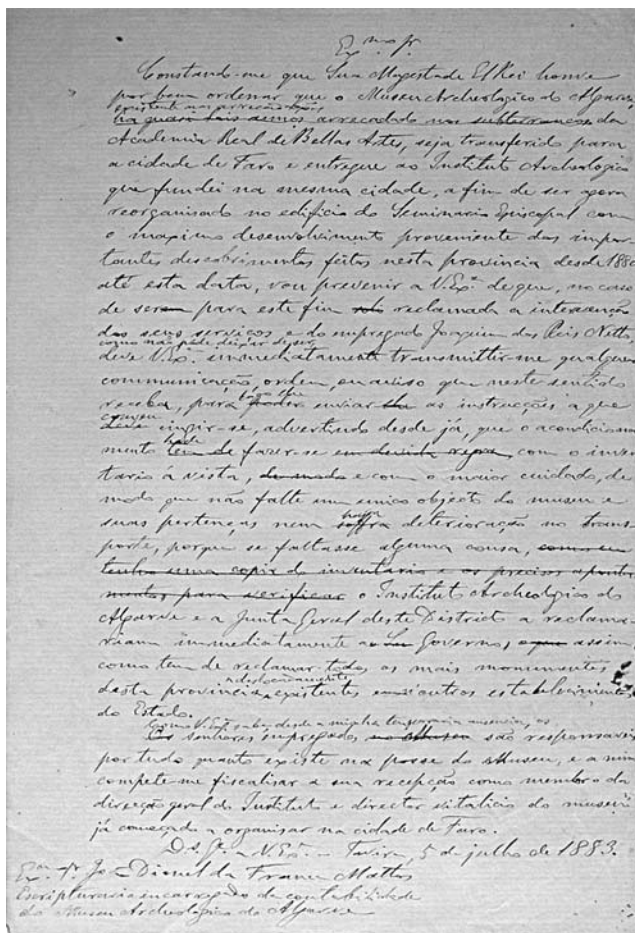 Ex.mo Sr.
Constando-me que Sua Magestade El Rei houve
por bem ordenar que o Museu Archeologico do Algarve,
existente nas arrecadações
ha quasi dois annos arrecadado nos subterraneos da
Academia Real de Bellas Artes, seja transferido para
a cidade de Faro e entregue ao Instituto Archeologico
que fundei na mesma cidade, a fim de ser agora
reorganisado no edificio do Seminario Episcopal com
o maximo desenvolvimento proveniente das impor-
tantes descobrimentos feitos nesta provincia desde 1880
até esta data, vou prevenir a V. Ex.ª de que, no caso
de ser para este fim reclamada a intervenção
dos seus serviços e do empregado Joaquim dos Reis Netto,
como não póde deixar de ser,
deve V. Ex.ª immediatamente transmittir-me qualquer
communicação, ordem, ou aviso que neste sentido
receba, para enviar as instrucções a que
convem
deve cingir-se, advertindo desde já, que o acondiciona-
mento tem de fazer-se em devida regra, com o inven-
tario á vista, de modo e com o maior cuidado, de
modo que não falte um unico objecto do museu e
haja
suas pertenças nem soffra deterioração no trans-
porte, porque se faltasse alguma cousa, como eu
tenho uma copia do inventario e os precisos aponta-
mentos para verificar o Instituto Archeologico do
Algarve e a Junta Geral deste Districto a reclama-
riam immediatamente ao Governo, assim
como tem de reclamar todos os mais monumentos
desta provincia, existentes outros estabelecimentos
do Estado.
Como V. Ex.ª sabe, desde a minha temporaria ausencia, os
Os senhores empregados no Museu são responsaveis
por tudo quanto existe na posse do Museu, e a mim
compete-me fiscalisar a sua recepção como membro da
direcção geral do Instituto e director vitalicio do museu
já começado a organisar na cidade de Faro.
D.s G.e a V. Ex.ª – Tavira, 5 de julho de 1883.
Ex.mo Sr. Daniel da Franca Mattos
Escripturario encarregado da contabilidade
do Museu Archeologico do Algarve